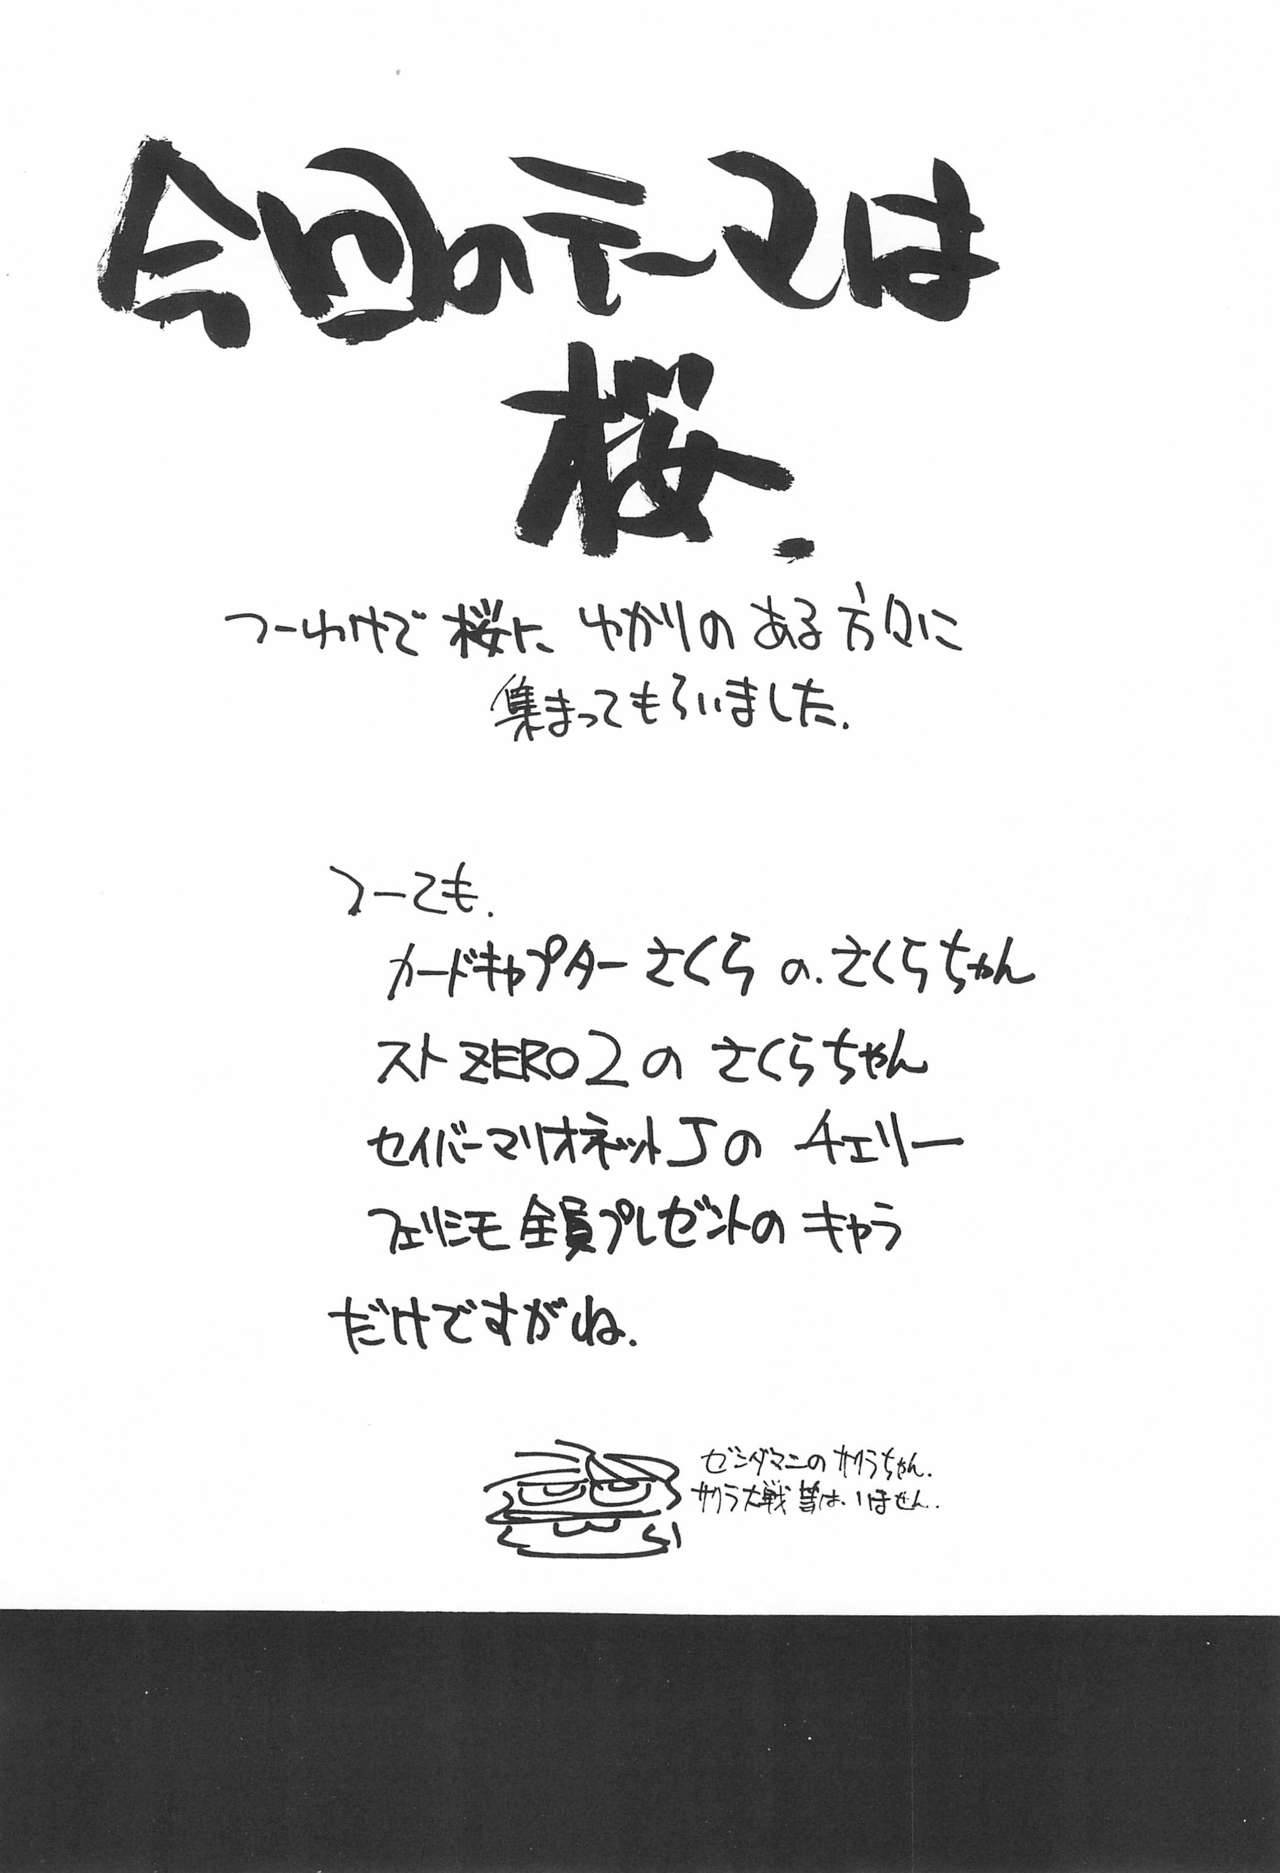 今回のテーマは
桜.
つーわけで 桜に ゆかりの ある 方々に
集まってもらいました.
つーても.
カードキャプターさくら の.さくらちゃん
ストZERO2の さくらちゃん
セイバーマリオネットJの チェリー
フェリシモ全員プレゼントの キャラ
だけですがね.
ゼンダマンの サクラちゃん.
サクラ大戦 等は、いません.